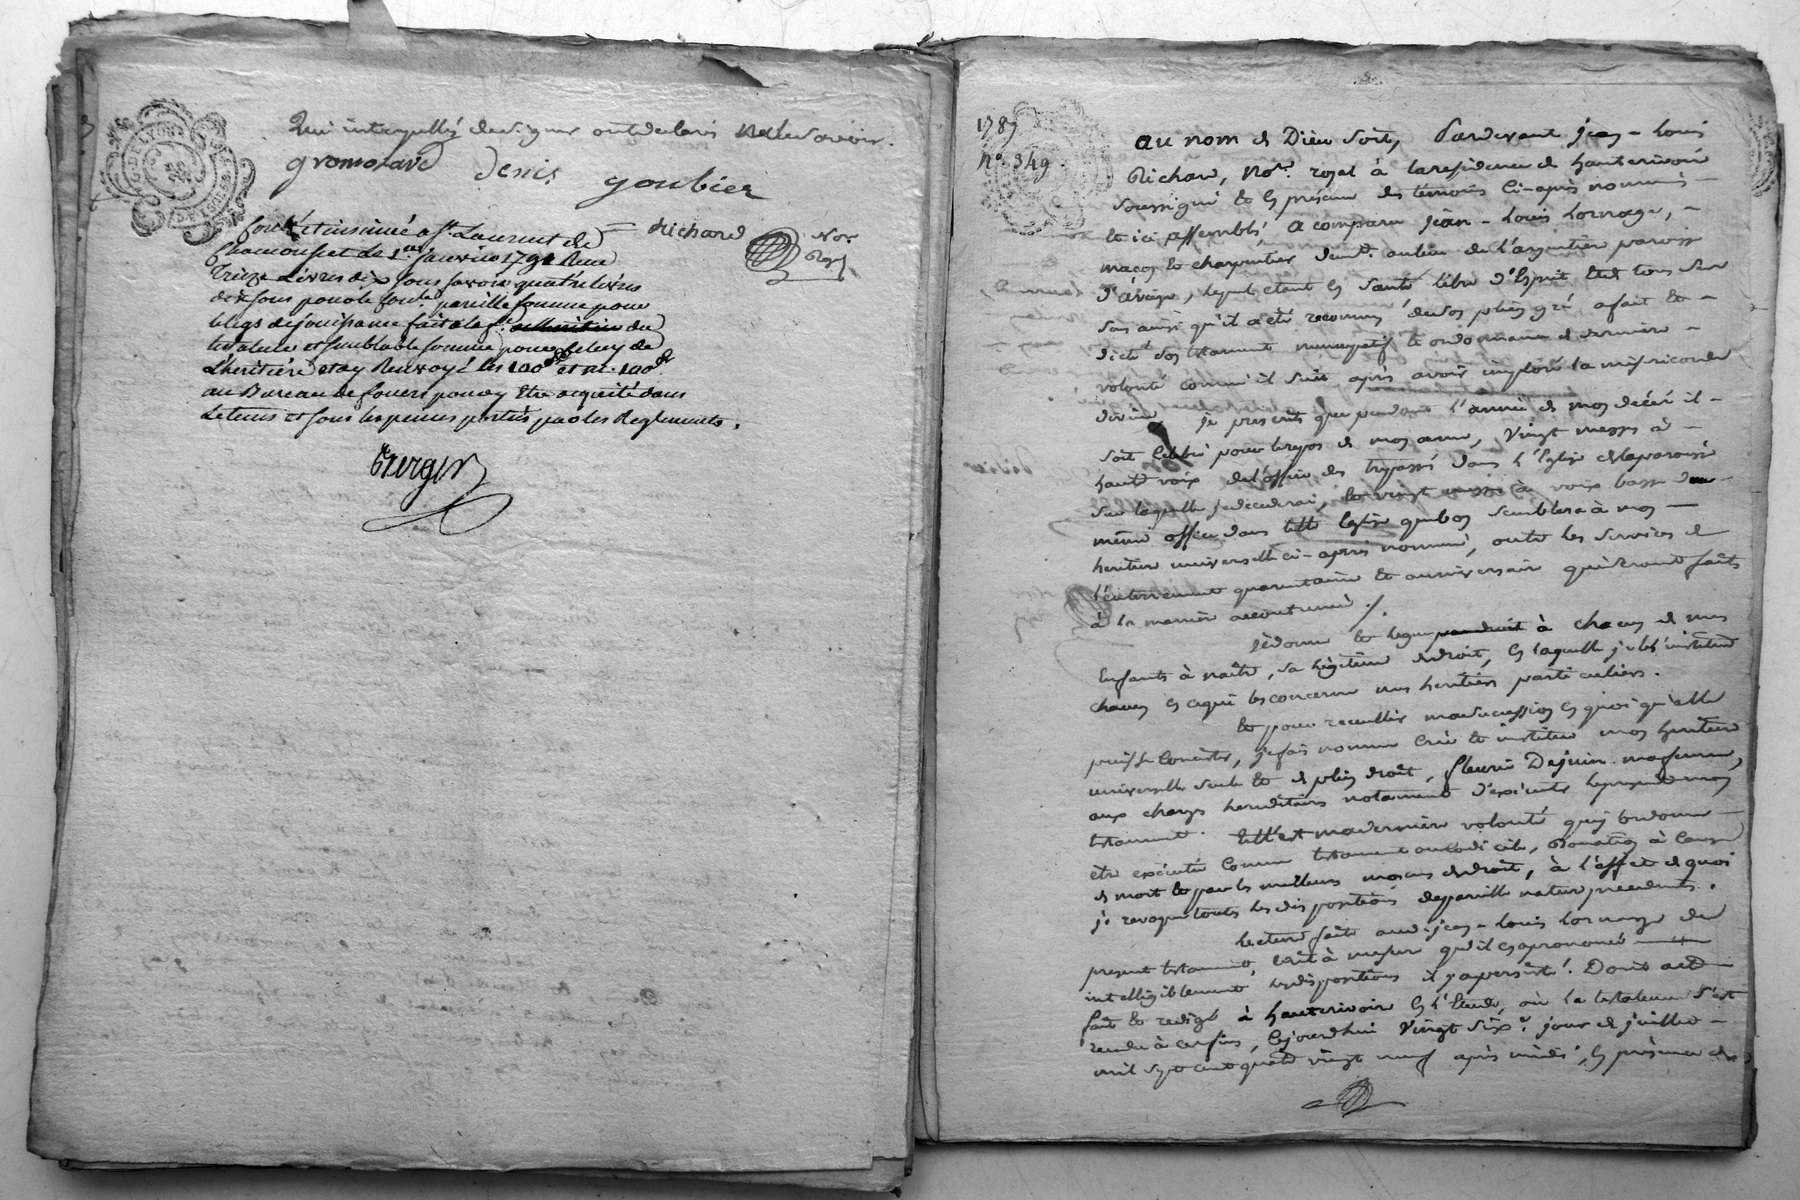 G. DE LYON
qui interpellés de signer ont déclaré ne le savoir.
gromolard Denis goubier
Richard Nore Royal
Conlé et insinué a St. Laurent de
Chamousset le 1er janvier 1791 Reçu
Treize Livres dix sous savoir quatre livres
dix sous pour le conle. pareille somme pour
le legs de jouissance fait à la fe. du
testateur et semblable somme pour celuy de
L'héritière et ay Renvoyé les 100e d. et ni. 100e d.
au Bureau de pour y Etre acquité dans
Le tems et sous les peines portées par les Reglements.
Berger
1789
No. 349.
Au nom de Dieu soit, Pardevant jean-Louis
Richard, Nore. royal à la residence de hauterivoire
soussigné et en présence des témoins ci-après nommés
et ici assemblés, a comparu jean-Louis Lornage,
maçon et charpentier demt. au lieu de l'argentière paroisse
d'aveize, lequel étant en santé libre d'Esprit et de tous ses
sens ainsi qu'il a été reconnu, de son plein gré a fait et
dicté son testament nuncupatif et ordonnance de derniere
volonté comme il suit après avoir imploré la misericorde
divine je prescris que pendant l'année de mon décès il
soit célébré pour le repos de mon ame, vingt messes à
haute voix de l'office des trépassés dans l'Eglise de la paroisse
sur laquelle je décéderai, et vingt messes à voix basse du
même office dans telle Eglise que bon semblera à mon
heritiere universelle ci-après nommée, outre les services de
l'enterrement quarantaine et anniversaire qui seront faits
à la manière accoutumée ./.
je donne et legue à chacun de mes
Enfants à naître, sa légitime de droit, en laquelle je les institue
chacun en ce qui les concerne mes heritiers particuliers.
Et pour recueillir ma succession en quoi qu'elle
puisse consister, je fais nomme crée et institue mon heritiere
universelle seule et de plein droit, fleurie Dejuin ma femme,
aux charges hereditaires notamment d'exécuter le present mon
testament. telle est ma derniere volonté que j'ordonne
être exécutée comme testament ou codicile, donation à cause
de mort et par les meilleurs moyens de droit, à l'effet de quoi
je revoque toutes les dispositions de pareille nature precedentes.
Lecture faite audit jean-Louis Lornage du
present testament, écrit à mesure qu'il en a prononcé
intelligiblement les dispositions il y a persisté. Dont acte
fait et redigé à hauterivoire en l'Etude, où le testateur s'est
rendu à ces fins, cejourdhui vingt sixe. jour de juillet
mil sept cent quatre vingt neuf après midi, en présence de